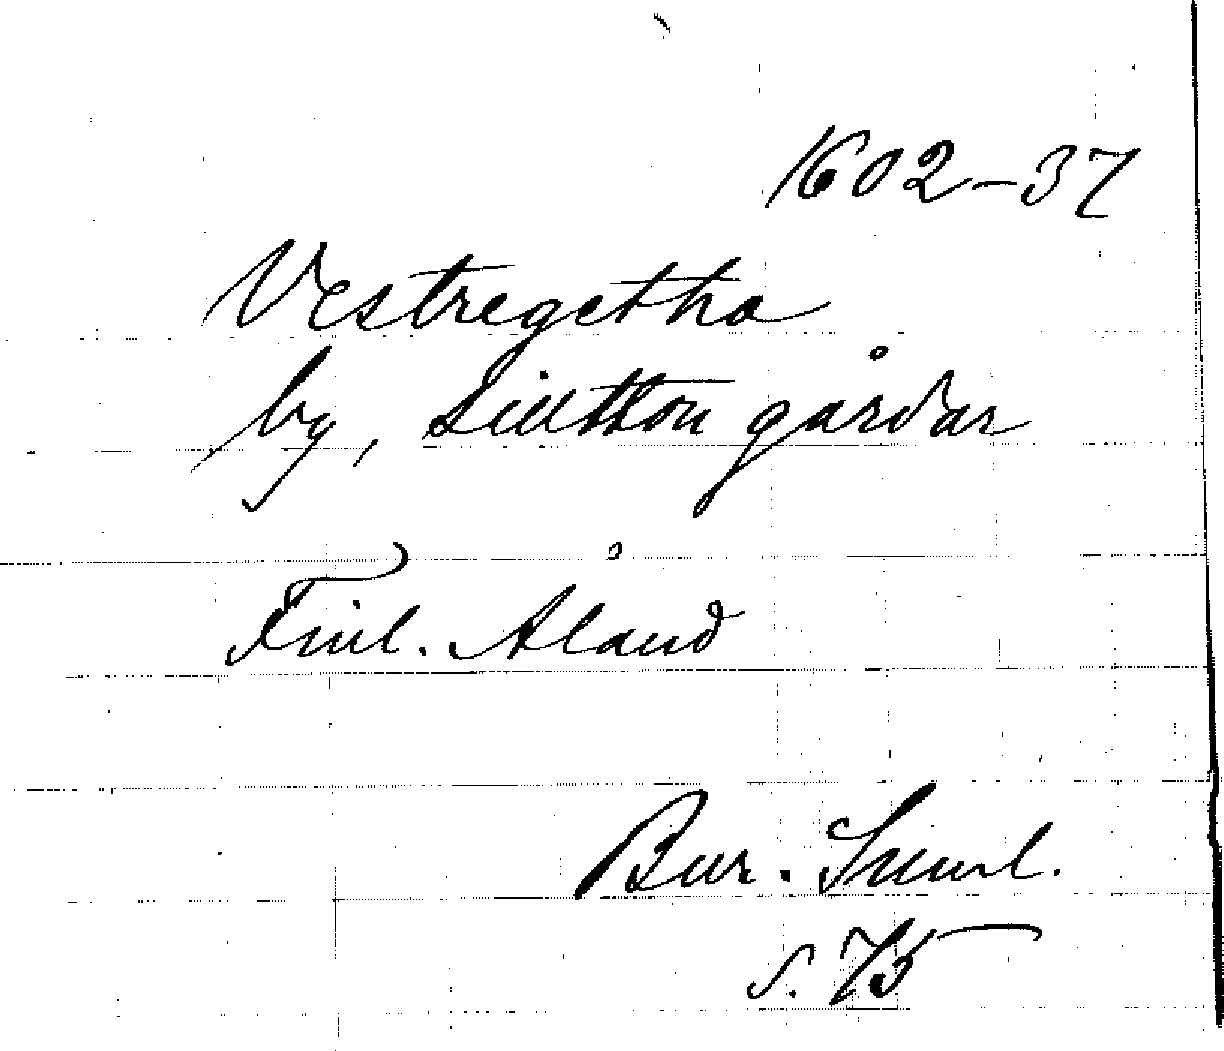 1602-37
Vestregetha
by, siutton gårdar
Finl. Åland
Bur. Suml.
s. 75